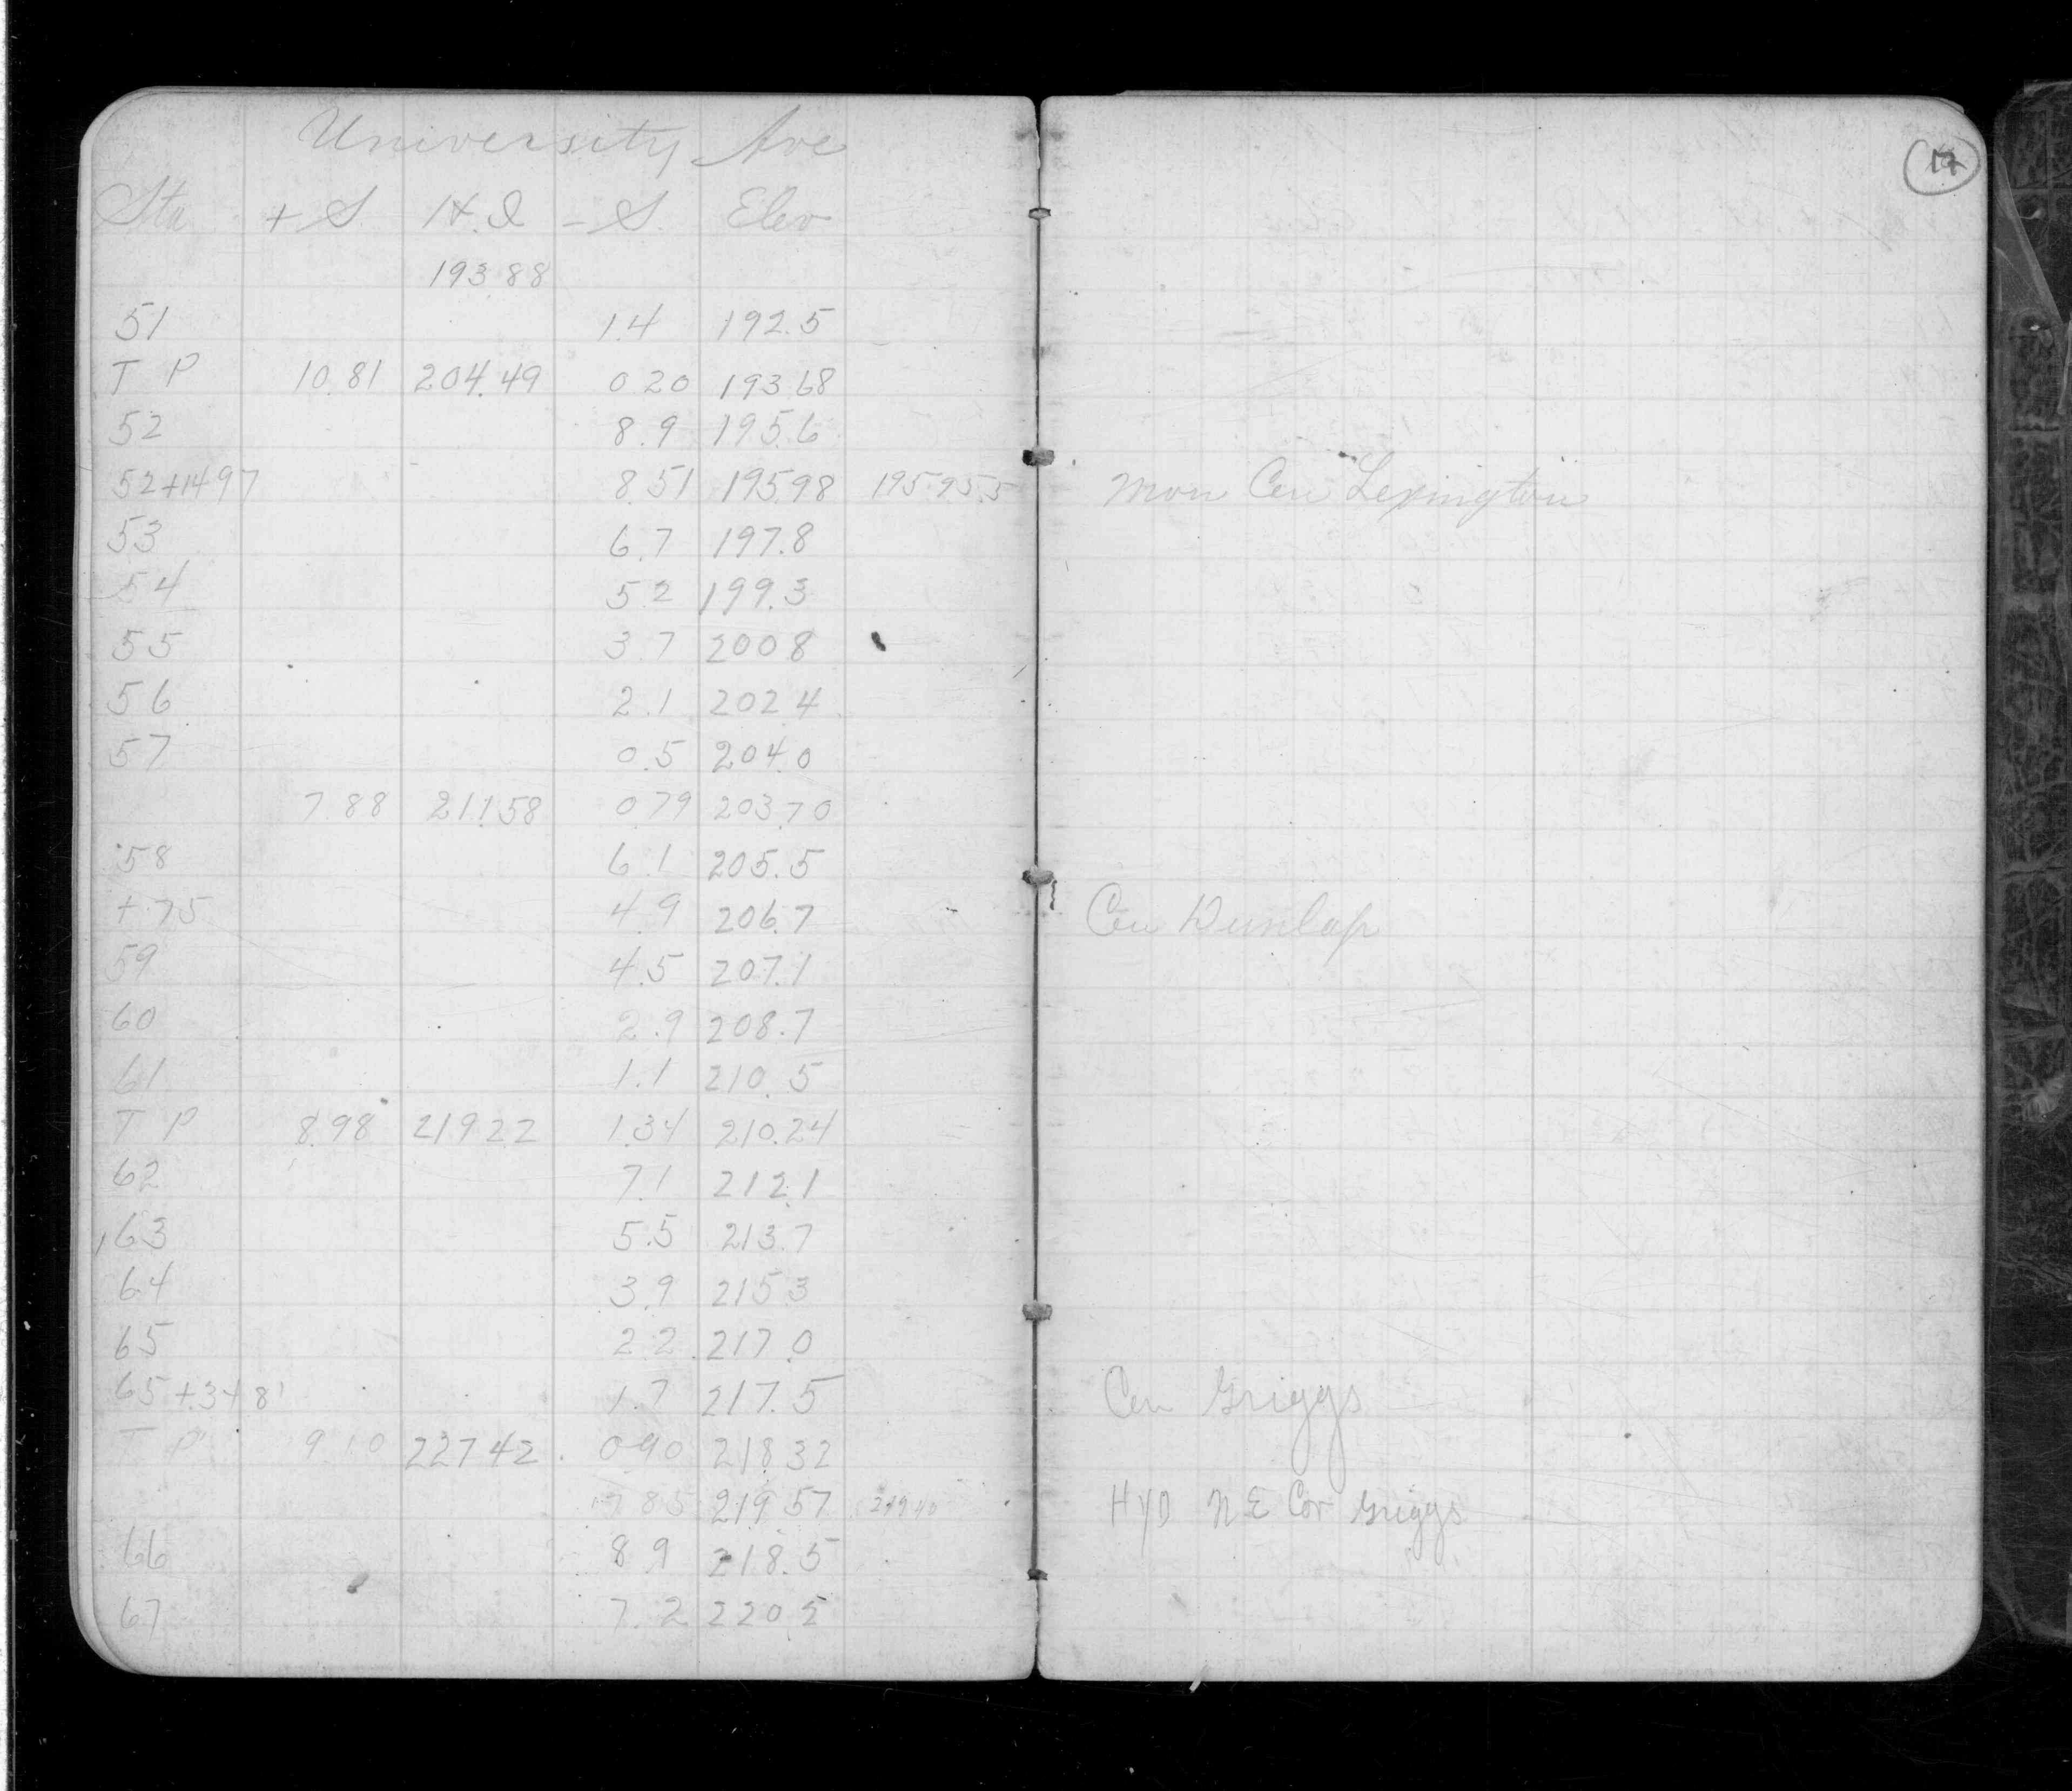 17
University Ave
Sta + S H.I - S. Elev
193.88
51 1.4 192.5
T P 10.81 204.49 0.20 193.68
52 8.9 195.6
52+14.97 8.51 195.98 195.955 Mon Cen Lexington
53 6.7 197.8
54 5.2 199.3
55 3.7 200.8
56 2.1 202.4
57 0.5 204.0
7.88 211.58 0.79 203.70
58 6.1 205.5
+75 4.9 206.7 Cen Dunlap
59 4.5 207.1
60 2.9 208.7
61 1.1 210.5
T P 8.98 219.22 1.34 210.24
62 7.1 212.1
63 5.5 213.7
64 3.9 215.3
65 2.2 217.0
65+34.8 1.7 217.5 Cen Griggs
T P 9.10 227.42 0.90 218.32
7.85 219.57 Hyd N E Cor Griggs
66 8.9 218.5
67 7.2 220.2